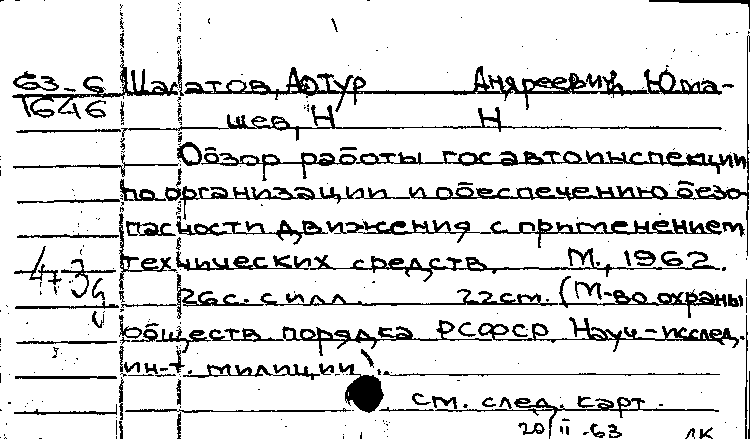 63-6 Шалатов, Артур Андреевич, Юма-
1646 шев, Н Н
Обзор работы госавтоинспекции
по организации и обеспечению безо-
пасности движения с применением
технических средств. М., 1962.
26 с. с илл. 22 см. (М-во охраны
обществ. порядка РСФСР. Науч-исслед.
ин-т. милиции).
4+3д
см. след. карт.
20/II-63 ЛК